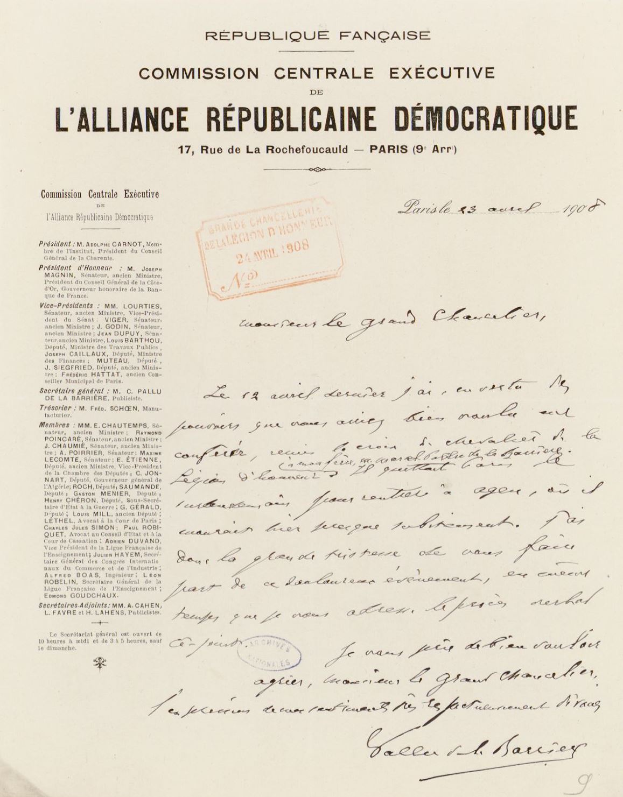 RÉPUBLIQUE FANÇAISE
COMMISSION CENTRALE EXÉCUTIVE
DE
L'ALLIANCE RÉPUBLICAINE DÉMOCRATIQUE
17, Rue de La Rochefoucauld — PARIS (9e Arrt)
Commission Centrale Exécutive
DE
l'Alliance Républicaine Démocratique
Président : M. ADOLPHE CARNOT, Mem-
bre de l'Institut, Président du Conseil
Général de la Charente.
Président d'Honneur : M. JOSEPH
MAGNIN, Sénateur, ancien Ministre,
Président du Conseil Général de la Côte-
d'Or, Gouverneur honoraire de la Ban-
que de France.
Vice-Présidents : MM. LOURTIES,
Sénateur, ancien Ministre, Vice-Prési-
dent du Sénat. VIGER, Sénateur,
ancien Ministre ; J. GODIN, Sénateur,
ancien Ministre ; JEAN DUPUY, Séna-
teur, ancien Ministre, LOUIS BARTHOU,
Député, Ministre des Travaux Publics,
JOSEPH CAILLAUX, Député, Ministre
des Finances ; MUTEAU, Député,
J. SIEGFRIED, Député, ancien Minis-
tre ; FRÉDÉRIC HATTAT, ancien Con-
seiller Municipal de Paris.
Secrétaire général : M. C. PALLU
DE LA BARRIÈRE, Publiciste.
Trésorier : M. FRÉD. SCHŒN, Manu-
facturier.
Membres : MM. E. CHAUTEMPS, Sé-
nateur, ancien Ministre ; RAYMOND
POINCARÉ, Sénateur, ancien Ministre ;
J. CHAUMIÉ, Sénateur, ancien Minis-
tre ; A. POIRRIER, Sénateur ; MAXIME
LECOMTE, Sénateur ; E. ÉTIENNE,
Député, ancien Ministre, Vice-Président
de la Chambre des Députés ; C. JON-
NART, Député, Gouverneur général de
l'Algérie ; ROCH, Député ; SAUMANDE,
Député ; GASTON MENIER, Député ;
HENRY CHÉRON, Député, Sous-Secré-
taire d'État à la Guerre ; G. GÉRALD,
Député ; LOUIS MILL, ancien Député ;
LÉTHEL, Avocat à la Cour de Paris ;
CHARLES JULES SIMON ; PAUL ROBI-
QUET, Avocat au Conseil d'État et à la
Cour de Cassation ; ADRIEN DUVAND,
Vice Président de la Ligue Française de
l'Enseignement ; JULIEN HAYEM, Secré-
taire Général des Congrès Internatio-
naux du Commerce et de l'Industrie ;
ALFRED BOAS, Ingénieur ; LÉON
ROBELIN, Secrétaire Général de la
Ligue Française de l'Enseignement ;
EDMOND GOUDCHAUX.
Secrétaires Adjoints : MM. A. CAHEN,
L. FAVRE et H. LAHENS, Publicistes.
Le Secrétariat général est ouvert de
10 heures à midi et de 3 à 5 heures, sauf
le dimanche.
GRANDE CHANCELLERIE
DE LA LÉGION D'HONNEUR
24 AVRIL 1908
No
Paris le 23 avril 1908
Monsieur le grand Chancelier,
Le 12 avril dernier j'ai, en vertu des
pouvoirs que vous aviez bien voulu me
conférer, remis la croix de chevalier de la
Légion d'honneur à mon frère, de la Barrière. Il quittait Paris le
surlendemain pour rentrer à Agen, où il
mourait hier presque subitement. J'ai
donc la grande tristesse de vous faire
part de ce douloureux événement, en même
temps que je vous adresse le procès verbal
ci-joint.
Je vous prie de bien vouloir
agréer, Monsieur le grand Chancelier,
l'expression de mes sentiments très respectueusement dévoués
Pallu de la Barrière
ARCHIVES
NATIONALES
9